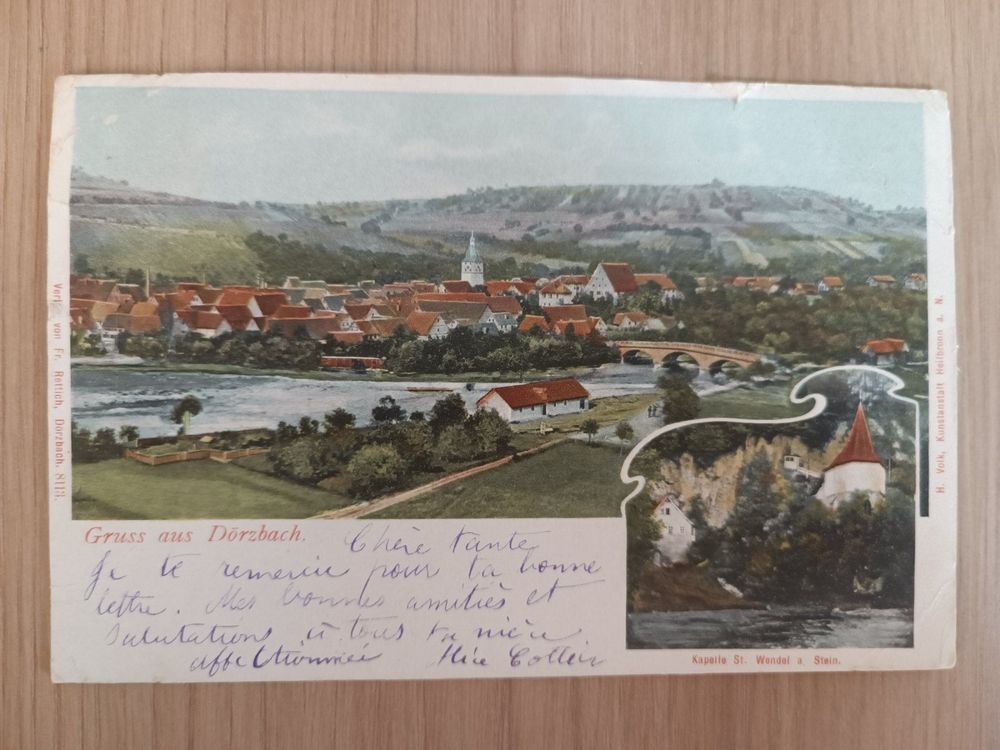 Verlag von Fr. Rettich, Dörzbach. 8113.
H. Volk, Kunstanstalt Heilbronn a. N.
Gruss aus Dörzbach.
Chère tante
Je te remercie pour ta bonne
lettre. Mes bonnes amitiés et
salutations à tous ta nièce
affectionnée
Kapelle St. Wendel a. Stein.